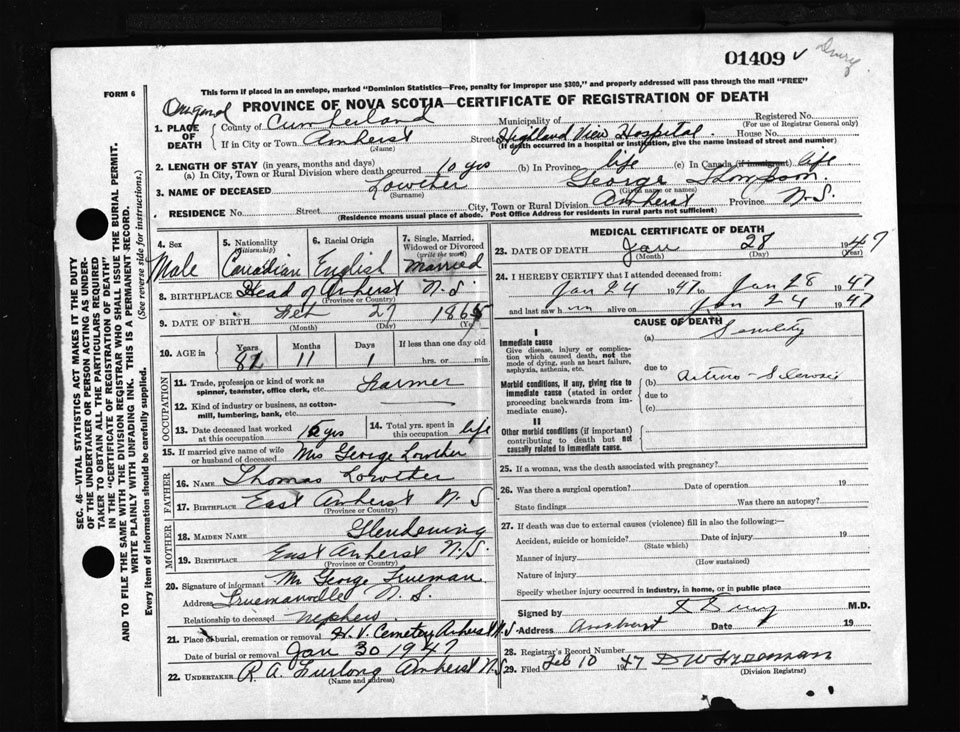 01409 v
FORM 6
This form if placed in an envelope, marked "Dominion Statistics—Free, penalty for improper use $300," and properly addressed will pass through the mail "FREE"
PROVINCE OF NOVA SCOTIA—CERTIFICATE OF REGISTRATION OF DEATH
Original
1. PLACE OF DEATH County of Cumberland Municipality of Registered No. (For use of Registrar General only)
If in City or Town Amherst (Name) Street Highland View Hospital. House No.
(If death occurred in a hospital or institution, give the name instead of street and number)
2. LENGTH OF STAY (in years, months and days)
(a) In City, Town or Rural Division where death occurred 10 yrs (b) In Province life (c) In Canada (if immigrant) life
3. NAME OF DECEASED Lowther (Surname) George Thompson (Given name or names)
RESIDENCE No. Street City, Town or Rural Division Amherst Province N.S.
(Residence means usual place of abode. Post Office Address for residents in rural parts not sufficient)
4. Sex Male
5. Nationality (Citizenship) Canadian
6. Racial Origin English
7. Single, Married, Widowed or Divorced (write the word) Married
8. BIRTHPLACE Head of Amherst N.S. (Province or Country)
9. DATE OF BIRTH Feb (Month) 27 (Day) 1865 (Year)
10. AGE in Years 81 Months 11 Days 1 If less than one day old hrs. or min.
OCCUPATION
11. Trade, profession or kind of work as spinner, teamster, office clerk, etc. Farmer
12. Kind of industry or business, as cotton-mill, lumbering, bank, etc.
13. Date deceased last worked at this occupation 10 yrs 14. Total yrs. spent in this occupation life
15. If married give name of wife or husband of deceased Mrs George Lowther
FATHER
16. NAME Thomas Lowther
17. BIRTHPLACE East Amherst N S (Province or Country)
MOTHER
18. MAIDEN NAME Glendening
19. BIRTHPLACE East Amherst N.S. (Province or Country)
20. Signature of informant Mr George Trueman
Address Truemanville N. S.
Relationship to deceased Nephew
21. Place of burial, cremation or removal H. V. Cemetery Amherst N.S.
Date of burial or removal Jan 30 1947
22. UNDERTAKER R. A. Furlong Amherst N.S (Name and address)
MEDICAL CERTIFICATE OF DEATH
23. DATE OF DEATH Jan (Month) 28 (Day) 1947 (Year)
24. I HEREBY CERTIFY that I attended deceased from:
Jan 24 1947 to Jan 28 1947
and last saw him alive on Jan 24 1947
CAUSE OF DEATH
I
Immediate cause
Give disease, injury or complication which caused death, not the mode of dying, such as heart failure, asphyxia, asthenia, etc.
(a) Senility
due to
Morbid conditions, if any, giving rise to immediate cause (stated in order proceeding backwards from immediate cause).
(b) Arterio-Sclerosis
due to
(c)
II
Other morbid conditions (if important) contributing to death but not causally related to immediate cause.
25. If a woman, was the death associated with pregnancy?
26. Was there a surgical operation? Date of operation 19
State findings Was there an autopsy?
27. If death was due to external causes (violence) fill in also the following:—
Accident, suicide or homicide? (State which) Date of injury 19
Manner of injury (How sustained)
Nature of injury
Specify whether injury occurred in industry, in home, or in public place
Signed by M.D.
Address Amherst Date 19
28. Registrar's Record Number
29. Filed Feb 10 1947 (Division Registrar)
SEC. 46—VITAL STATISTICS ACT MAKES IT THE DUTY
OF THE UNDERTAKER OR PERSON ACTING AS UNDER-
TAKER TO OBTAIN ALL THE PARTICULARS REQUIRED
IN THE "CERTIFICATE OF REGISTRATION OF DEATH"
AND TO FILE THE SAME WITH THE DIVISION REGISTRAR WHO SHALL ISSUE THE BURIAL PERMIT.
WRITE PLAINLY WITH UNFADING INK. THIS IS A PERMANENT RECORD.
Every item of information should be carefully supplied. (See reverse side for instructions.)